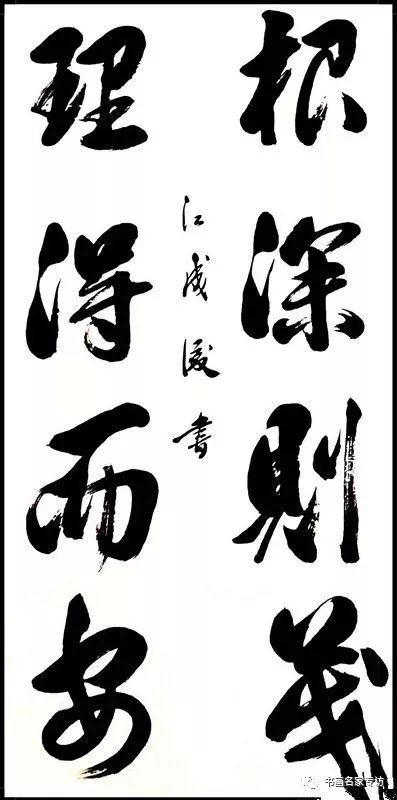 根深則茂
理得而安
江成 書
书画名家专访